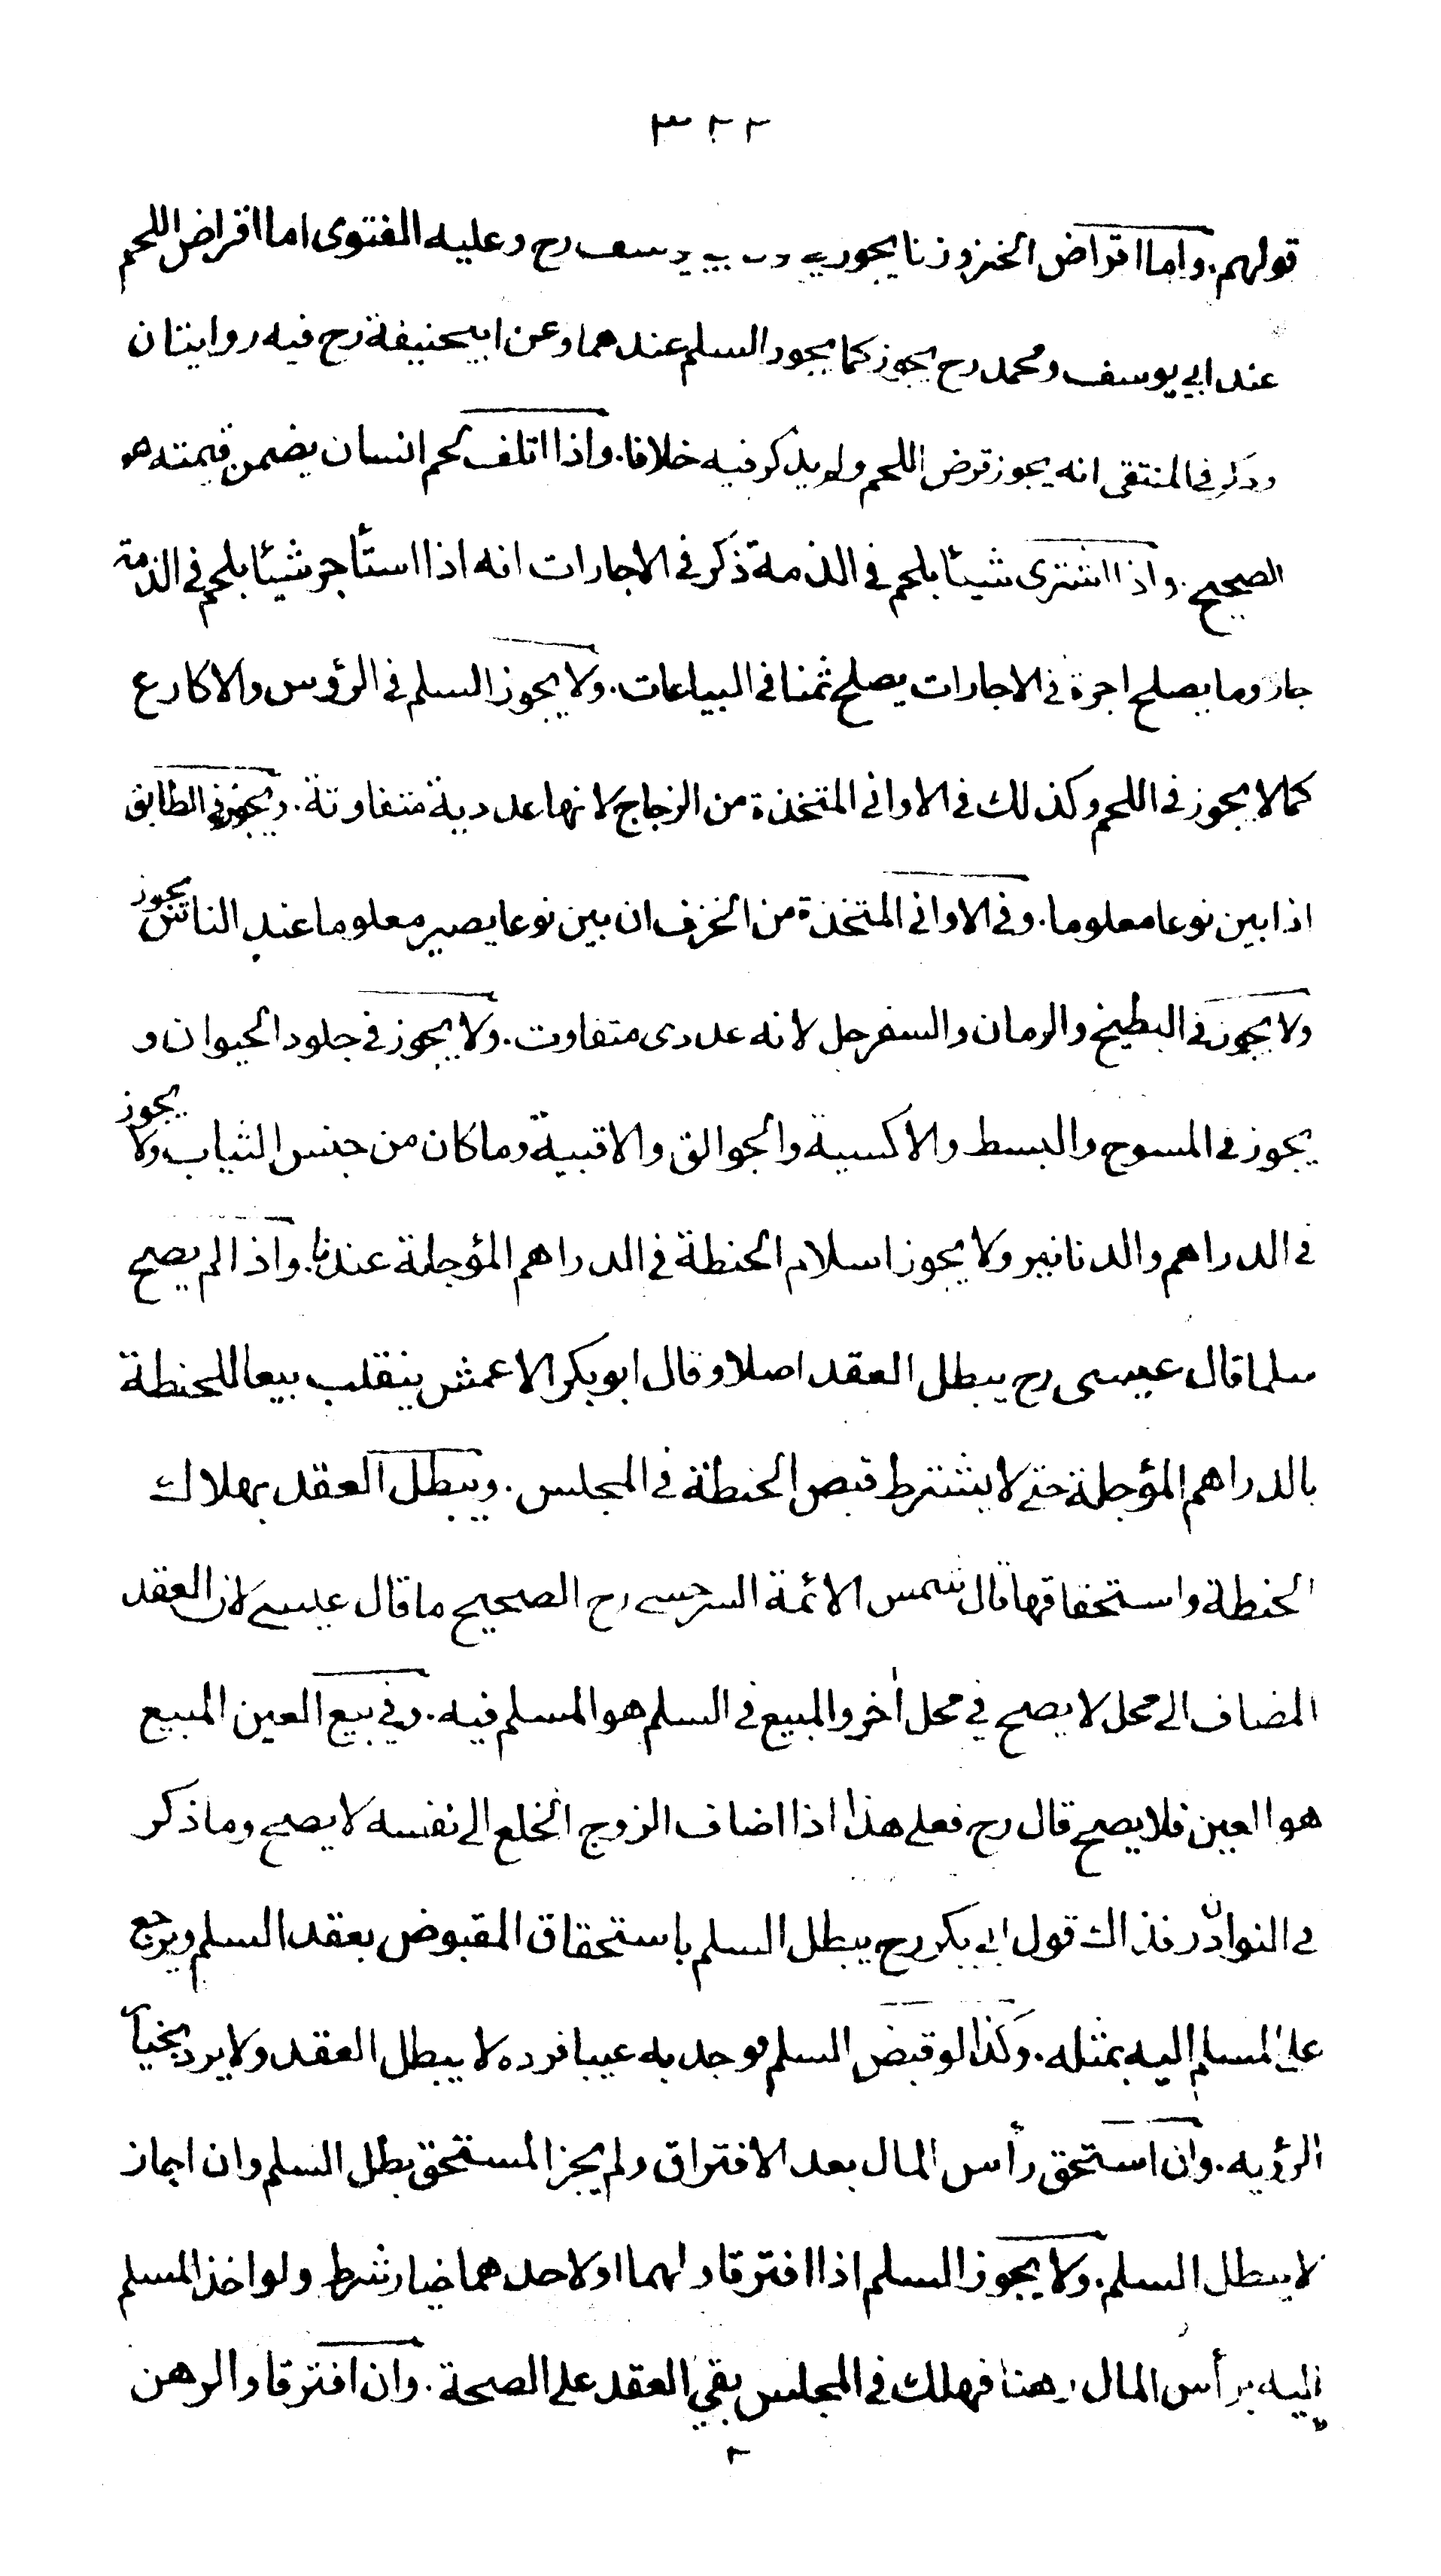 ٣٢٢
قولهم. واما اقراض الخبز وزنا يجوز يوسف رح وعليه الفتوى اما اقراض اللحم
عند ابي يوسف ومحمد رح يجوز كما يجوز السلم عندهما وعن ابيحنيفة رح فيه روايتان
وذكر في المنتقى انه يجوز قرض اللحم ولم يذكر فيه خلافا. واذا اتلف لحم انسان يضمن قيمته هو
الصحيح. واذا اشترى شيئا بلحم في الذمة ذكر في الاجارات انه اذا استأجر شيئا بلحم في الذمة
جاز وما يصلح اجرة في الاجارات يصلح ثمنا في البياعات. ولا يجوز السلم في الرؤس والاكارع
كما لا يجوز في اللحم وكذلك في الاواني المتخذة من الزجاج لانها عددية متفاوتة. ويجوز في الطابق
اذا بين نوعا معلوما. وفي الاواني المتخذة من الخزف ان بين نوعا يصير معلوما عند الناس يجوز
ولا يجوز في البطيخ والرمان والسفرجل لانه عددى متفاوت. ولا يجوز في جلود الحيوان و
يجوز في المسوح والبسط والاكسية والجوالق والاقبية وما كان من جنس الثياب ولا يجوز
في الدراهم والدنانير ولا يجوز اسلام الحنطة في الدراهم المؤجلة عندنا. واذا لم يصح
سلما قال عيسى رح يبطل العقد اصلا وقال ابو بكر الاعمش ينقلب بيعا للحنطة
بالدراهم المؤجلة حتى لا يشترط قبض الحنطة في المجلس. ويبطل العقد بهلاك
الحنطة واستحقاقها قال شمس الائمة السرخسي رح الصحيح ما قال عيسى لان العقد
المضاف الى محل لا يصح في محل أخر والمبيع في السلم هو المسلم فيه. وفي بيع العين المبيع
هو العين فلا يصح قال رح فعلى هذا اذا اضاف الزوج الخلع الى نفسه لا يصح وما ذكر
في النوادر ان فذاك قول ابي بكر رح يبطل السلم باستحقاق المقبوض بعقد السلم ويرجع
على المسلم اليه بمثله. وكذا لو قبض السلم فوجد به عيبا فرده لا يبطل العقد ولا يرد بخيار
الرؤيه. وان استحق رأس المال بعد الافتراق ولم يجز المستحق بطل السلم وان اجاز
لا يبطل السلم. ولا يجوز السلم اذا افترقا ولهما او لاحدهما خيار شرط ولو اخذ المسلم
اليه برأس المال رهنا فهلك في المجلس بقي العقد على الصحة. وان افترقا والرهن